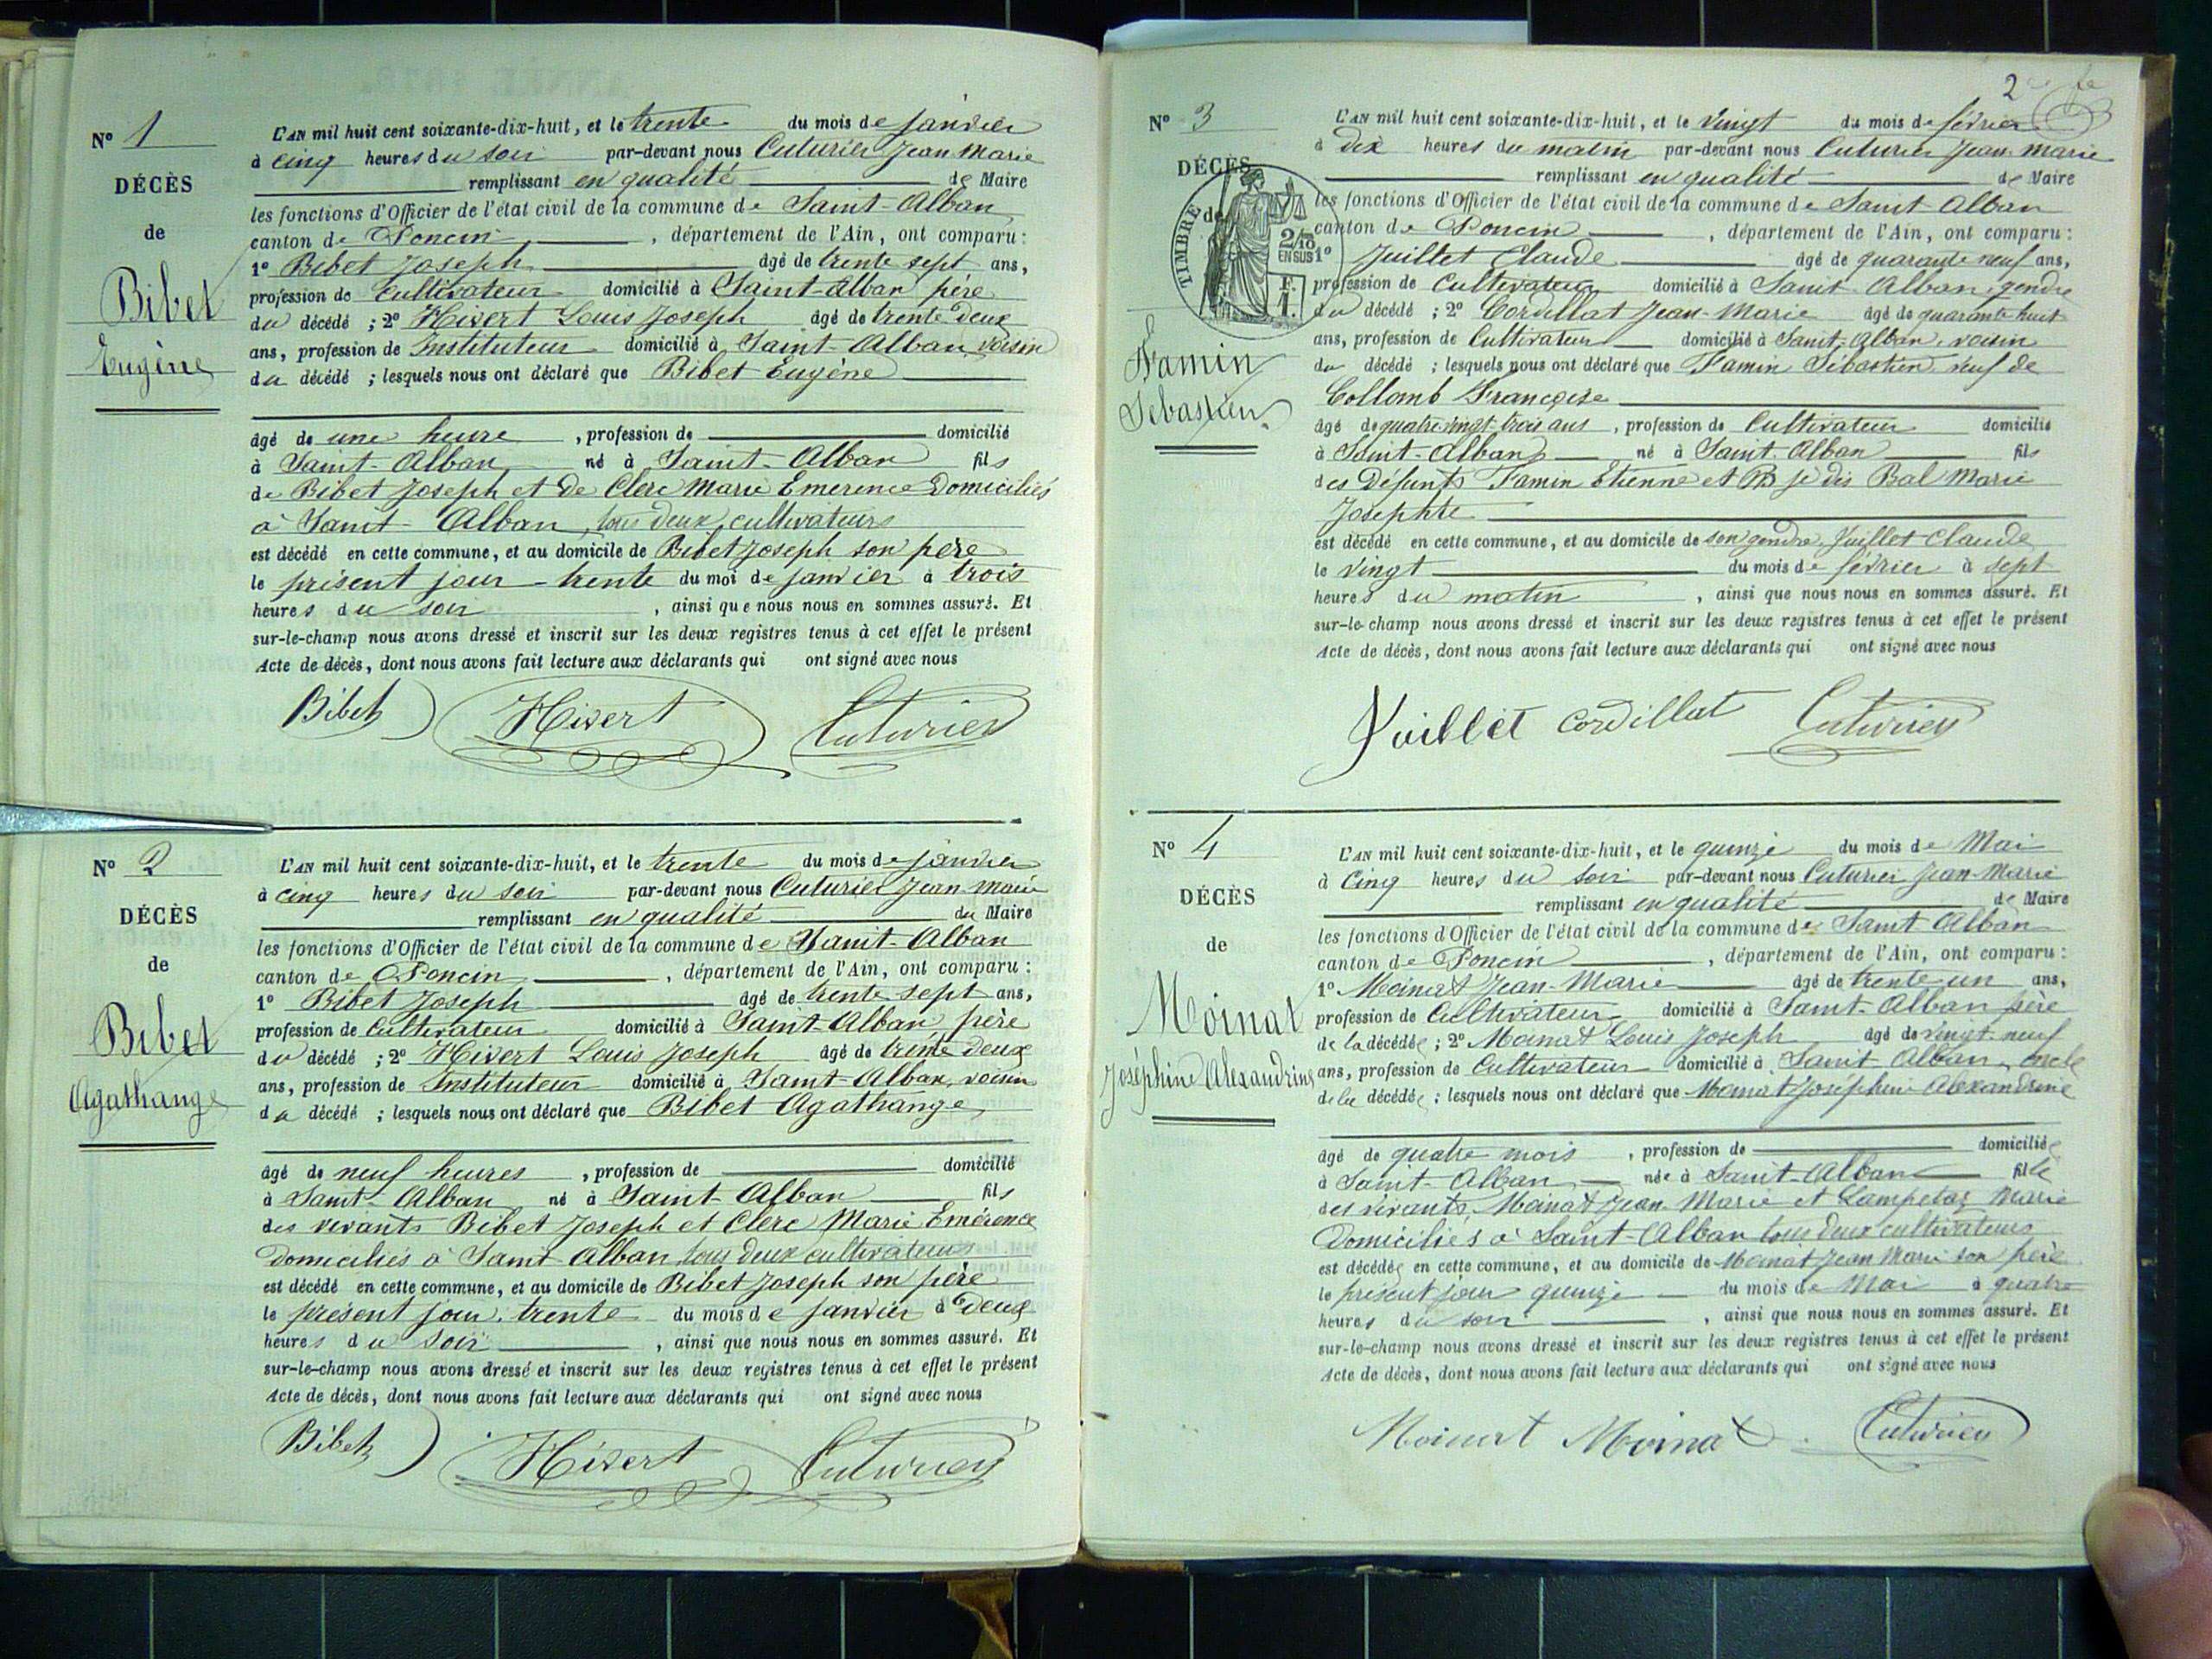 N° 1
DÉCÈS
de
Bibet
Eugène
L'AN mil huit cent soixante-dix-huit, et le trente du mois de janvier
à cinq heures du soir par-devant nous Cuturier Jean Marie
remplissant en qualité de Maire
les fonctions d'Officier de l'état civil de la commune de Saint-Alban
canton de Poncin, département de l'Ain, ont comparu :
1° Bibet Joseph âgé de trente sept ans,
profession de Cultivateur domicilié à Saint-Alban père
du décédé ; 2° Hivert Louis Joseph âgé de trente deux
ans, profession de Instituteur domicilié à Saint-Alban voisin
du décédé ; lesquels nous ont déclaré que Bibet Eugène
âgé de une heure, profession de domicilié
à Saint-Alban né à Saint-Alban fils
de Bibet Joseph et de Clerc Marie Emerence Domiciliés
à Saint-Alban, tous deux cultivateurs
est décédé en cette commune, et au domicile de Bibet Joseph son père
le présent jour trente du moi de janvier à trois
heures du soir, ainsi que nous nous en sommes assuré. Et
sur-le-champ nous avons dressé et inscrit sur les deux registres tenus à cet effet le présent
Acte de décès, dont nous avons fait lecture aux déclarants qui ont signé avec nous
Bibet Hivert Cuturier
N° 2
DÉCÈS
de
Bibet
Agathange
L'AN mil huit cent soixante-dix-huit, et le trente du mois de janvier
à cinq heures du soir par-devant nous Cuturier Jean-Marie
remplissant en qualité du Maire
les fonctions d'Officier de l'état civil de la commune de Saint-Alban
canton de Poncin, département de l'Ain, ont comparu :
1° Bibet Joseph âgé de trente sept ans,
profession de Cultivateur domicilié à Saint-Alban, père
du décédé ; 2° Hivert Louis Joseph âgé de trente deux
ans, profession de Instituteur domicilié à Saint-Alban, voisin
du décédé ; lesquels nous ont déclaré que Bibet Agathange
âgé de neuf heures, profession de domicilié
à Saint-Alban né à Saint-Alban fils
des vivants Bibet Joseph et Clerc Marie Emérence
Domiciliés à Saint-Alban tous deux cultivateurs
est décédé en cette commune, et au domicile de Bibet Joseph son père
le présent jour, trente du mois de janvier à deux
heures du soir, ainsi que nous nous en sommes assuré. Et
sur-le-champ nous avons dressé et inscrit sur les deux registres tenus à cet effet le présent
Acte de décès, dont nous avons fait lecture aux déclarants qui ont signé avec nous
Bibet Hivert Cuturier
2
N° 3
DÉCÈS
de
TIMBRE
2/10
EN SUS
F.
1.
Famin
Sébastien
L'AN mil huit cent soixante-dix-huit, et le vingt du mois de février
à Dix heures du matin par-devant nous Cuturier Jean-Marie
remplissant en qualité de Maire
les fonctions d'Officier de l'état civil de la commune de Saint Alban
canton de Poncin, département de l'Ain, ont comparu :
1° Juillet Claude âgé de quarante neuf ans,
profession de Cultivateur domicilié à Saint-Alban, gendre
du décédé ; 2° Cordillat Jean-Marie âgé de quarante huit
ans, profession de Cultivateur domicilié à Saint-Alban, voisin
du décédé ; lesquels nous ont déclaré que Famin Sébastien, veuf de
Collomb Françoise
âgé de quatre vingt trois ans, profession de Cultivateur domicilié
à Saint-Alban né à Saint-Alban fils
des Défunts Famin Etienne et je dis Bal Marie
Josephte
est décédé en cette commune, et au domicile de son gendre Juillet Claude
le vingt du mois de février à sept
heures du matin, ainsi que nous nous en sommes assuré. Et
sur-le-champ nous avons dressé et inscrit sur les deux registres tenus à cet effet le présent
Acte de décès, dont nous avons fait lecture aux déclarants qui ont signé avec nous
Juillet Cordillat Cuturier
N° 4
DÉCÈS
de
Moinat
Joséphine Alexandrine
L'AN mil huit cent soixante-dix-huit, et le quinze du mois de Mai
à Cinq heures du soir par-devant nous Cuturier Jean-Marie
remplissant en qualité de Maire
les fonctions d'Officier de l'état civil de la commune de Saint Alban
canton de Poncin, département de l'Ain, ont comparu :
1° Moinat Jean-Marie âgé de trente-un ans,
profession de Cultivateur domicilié à Saint-Alban père
de la décédée ; 2° Moinat Louis Joseph âgé de vingt-neuf
ans, profession de Cultivateur domicilié à Saint-Alban, oncle
de la décédée ; lesquels nous ont déclaré que Moinat Joséphine Alexandrine
âgé de quatre mois, profession de domiciliée
à Saint-Alban née à Saint-Alban fille
des vivants, Moinat Jean Marie et Marie
Domiciliés à Saint-Alban tous deux cultivateurs
est décédée en cette commune, et au domicile de Moinat Jean Marie son père
le présent jour quinze du mois de Mai à quatre
heures du soir, ainsi que nous nous en sommes assuré. Et
sur-le-champ nous avons dressé et inscrit sur les deux registres tenus à cet effet le présent
Acte de décès, dont nous avons fait lecture aux déclarants qui ont signé avec nous
Moinat Moinat Cuturier